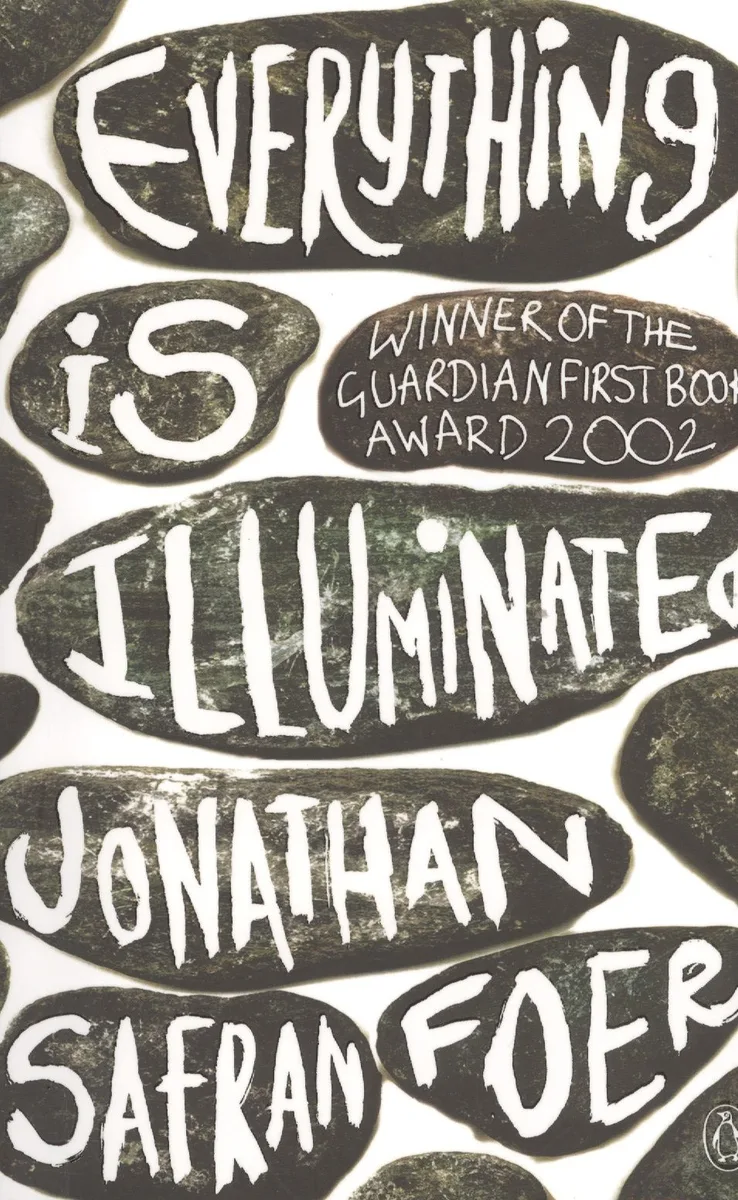 EVERYTHING
iS
WINNER OF THE
GUARDIAN FIRST BOOK
AWARD 2002
ILLUMiNATEd
JONATHAN
SAFRAN FOER